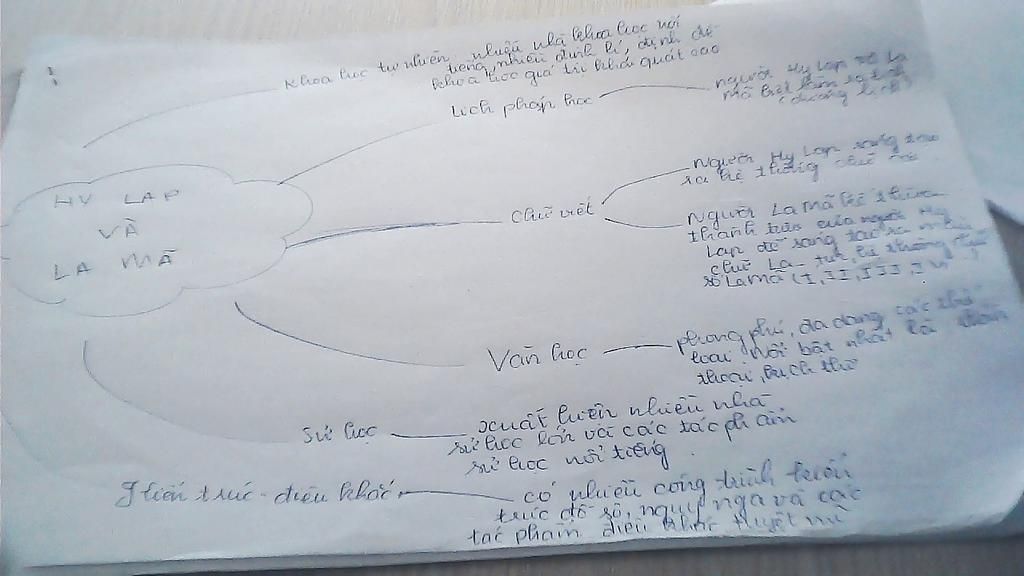 Khoa học tự nhiên nhiều nhà khoa học nổi
tiếng, nhiều định lí, định đề
khoa học giá trị khái quát cao
Lịch pháp học
người Hy Lạp và La
Mã biết làm ra lịch
(dương lịch)
HY LẠP
VÀ
LA MÃ
Chữ viết
Người Hy Lạp sáng tạo
ra hệ thống chữ cái
Người La mã kế thừa
thành tựu của người Hy
Lạp để sáng tạo ra
chữ La-tin, hệ thống chữ
số La mã (I, II, III, IV
Văn học
phong phú, đa dạng các thể
loại nổi bật nhất là thần
thoại, kịch thơ
Sử học
xuất hiện nhiều nhà
sử học lớn và các tác phẩm
sử học nổi tiếng
Kiến trúc - điêu khắc
có nhiều công trình kiến
trúc đồ sộ, nguy nga và các
tác phẩm điêu khắc tuyệt mĩ